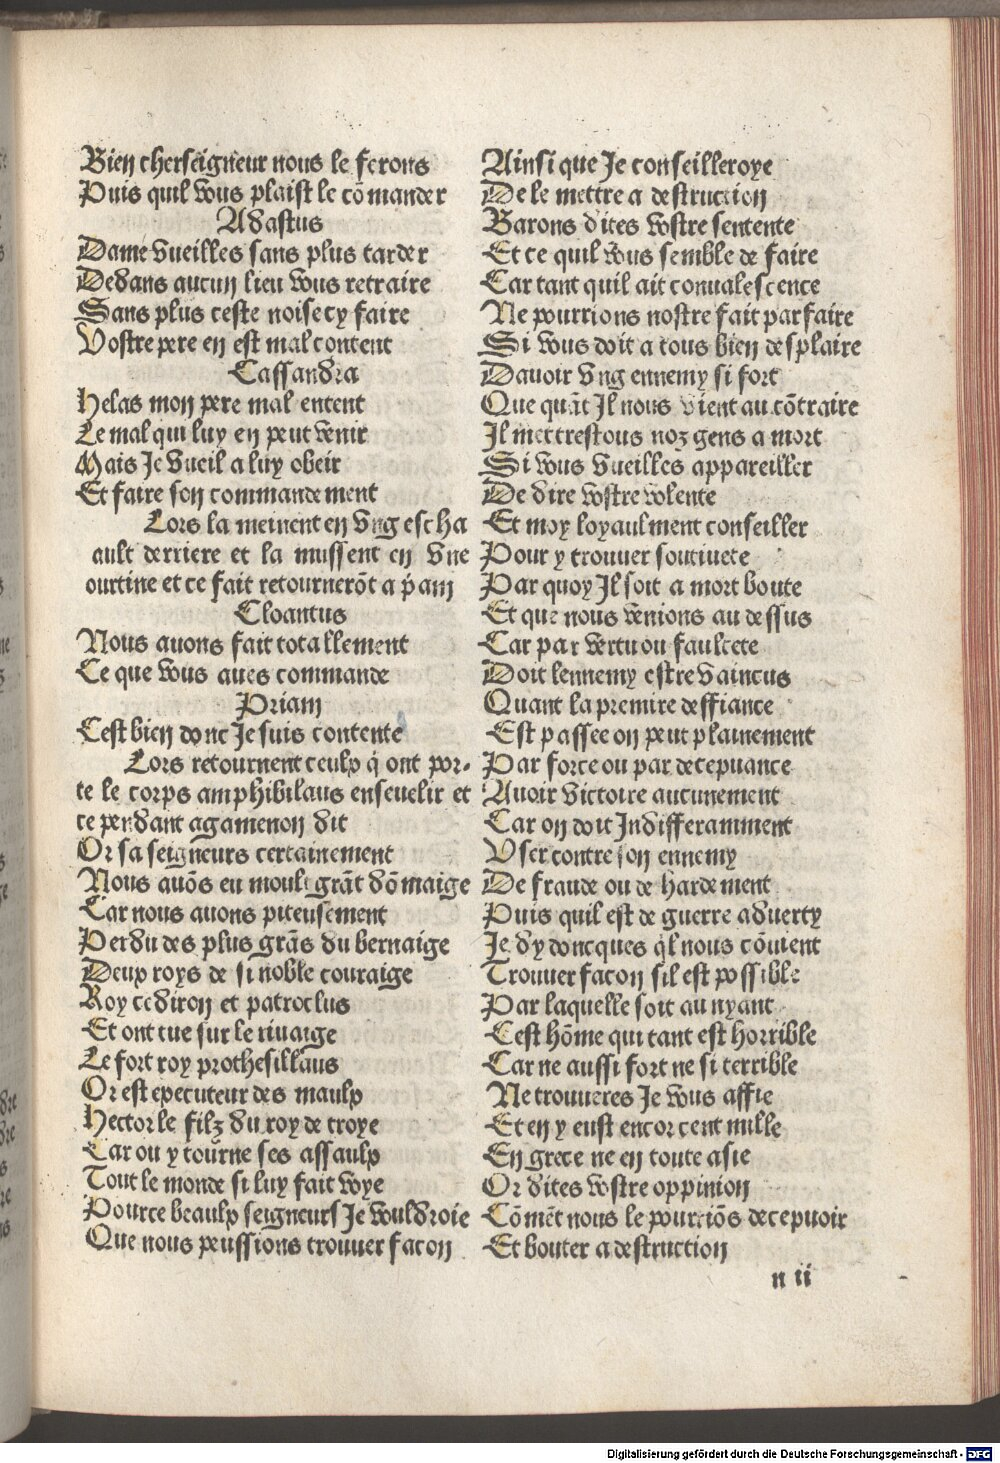 Bien cherseigneur nous le ferons
Puis quil vous plaist le cōmander
Adastus
Dame vueilles sans plus tarder
Dedans aucun lieu vous retraire
Sans plus ceste noise cy faire
Vostre pere en est mal content
Cassandra
Helas mon pere mal entent
Le mal qui luy en peut venir
Mais Je vueil a luy obeir
Et faire son commandement
Lors la meinent en vng escha
ault derriere et la mussent en vne
ourtine et ce fait retournerōt a p̄am
Cloantus
Nous auons fait totallement
Ce que vous aues commande
Priam
Cest bien donc Je suis contente
Lors retournent ceulx q̄ ont por-
te le corps amphibilaus enseuelir et
ce pendant agamenon dit
Or sa seigneurs certainement
Nous auōs eu moult grāt dōmaige
Car nous auons piteusement
Perdu des plus grās du bernaige
Deux roys de si noble couraige
Roy cediron et patroclus
Et ont tue sur le riuaige
Le fort roy prothesillaus
Or est executeur des maulx
Hector le filz du roy de troye
Car ou y tourne ses assaulx
Tout le monde si luy fait voye
Pource beaulx seigneurs Je vouldroie
Que nous peussions trouuer facon
Ainsi que Je conseilleroye
De le mettre a destruction
Barons dites vostre sentente
Et ce quil vous semble de faire
Car tant quil ait conualescence
Ne pourrions nostre fait parfaire
Si vous doit a tous bien desplaire
Dauoir vng ennemy si fort
Que quāt Jl nous vient au cōtraire
Jl met trestous noz gens a mort
Si vous vueilles appareiller
De dire vostre volente
Et moy loyaulment conseiller
Pour y trouuer soutiuete
Par quoy Jl soit a mort boute
Et que nous venions au dessus
Car par vertu ou faulcete
Doit lennemy estre vaincus
Quant la premire deffiance
Est passee on peut plainement
Par force ou par decepuance
Auoir victoire aucunement
Car on doit Jndifferamment
Vser contre son ennemy
De fraude ou de hardement
Puis quil est de guerre aduerty
Je dy doncques q̄l nous cōuient
Trouuer facon sil est possible
Par laquelle soit au nyant
Cest hōme qui tant est horrible
Car ne aussi fort ne si terrible
Ne trouueres Je vous affie
Et en y eust encor cent mille
En grece ne en toute asie
Or dites vostre oppinion
Cōmēt nous le pourriōs decepuoir
Et bouter a destruction
n ii
Digitalisierung gefördert durch die Deutsche Forschungsgemeinschaft - DFG